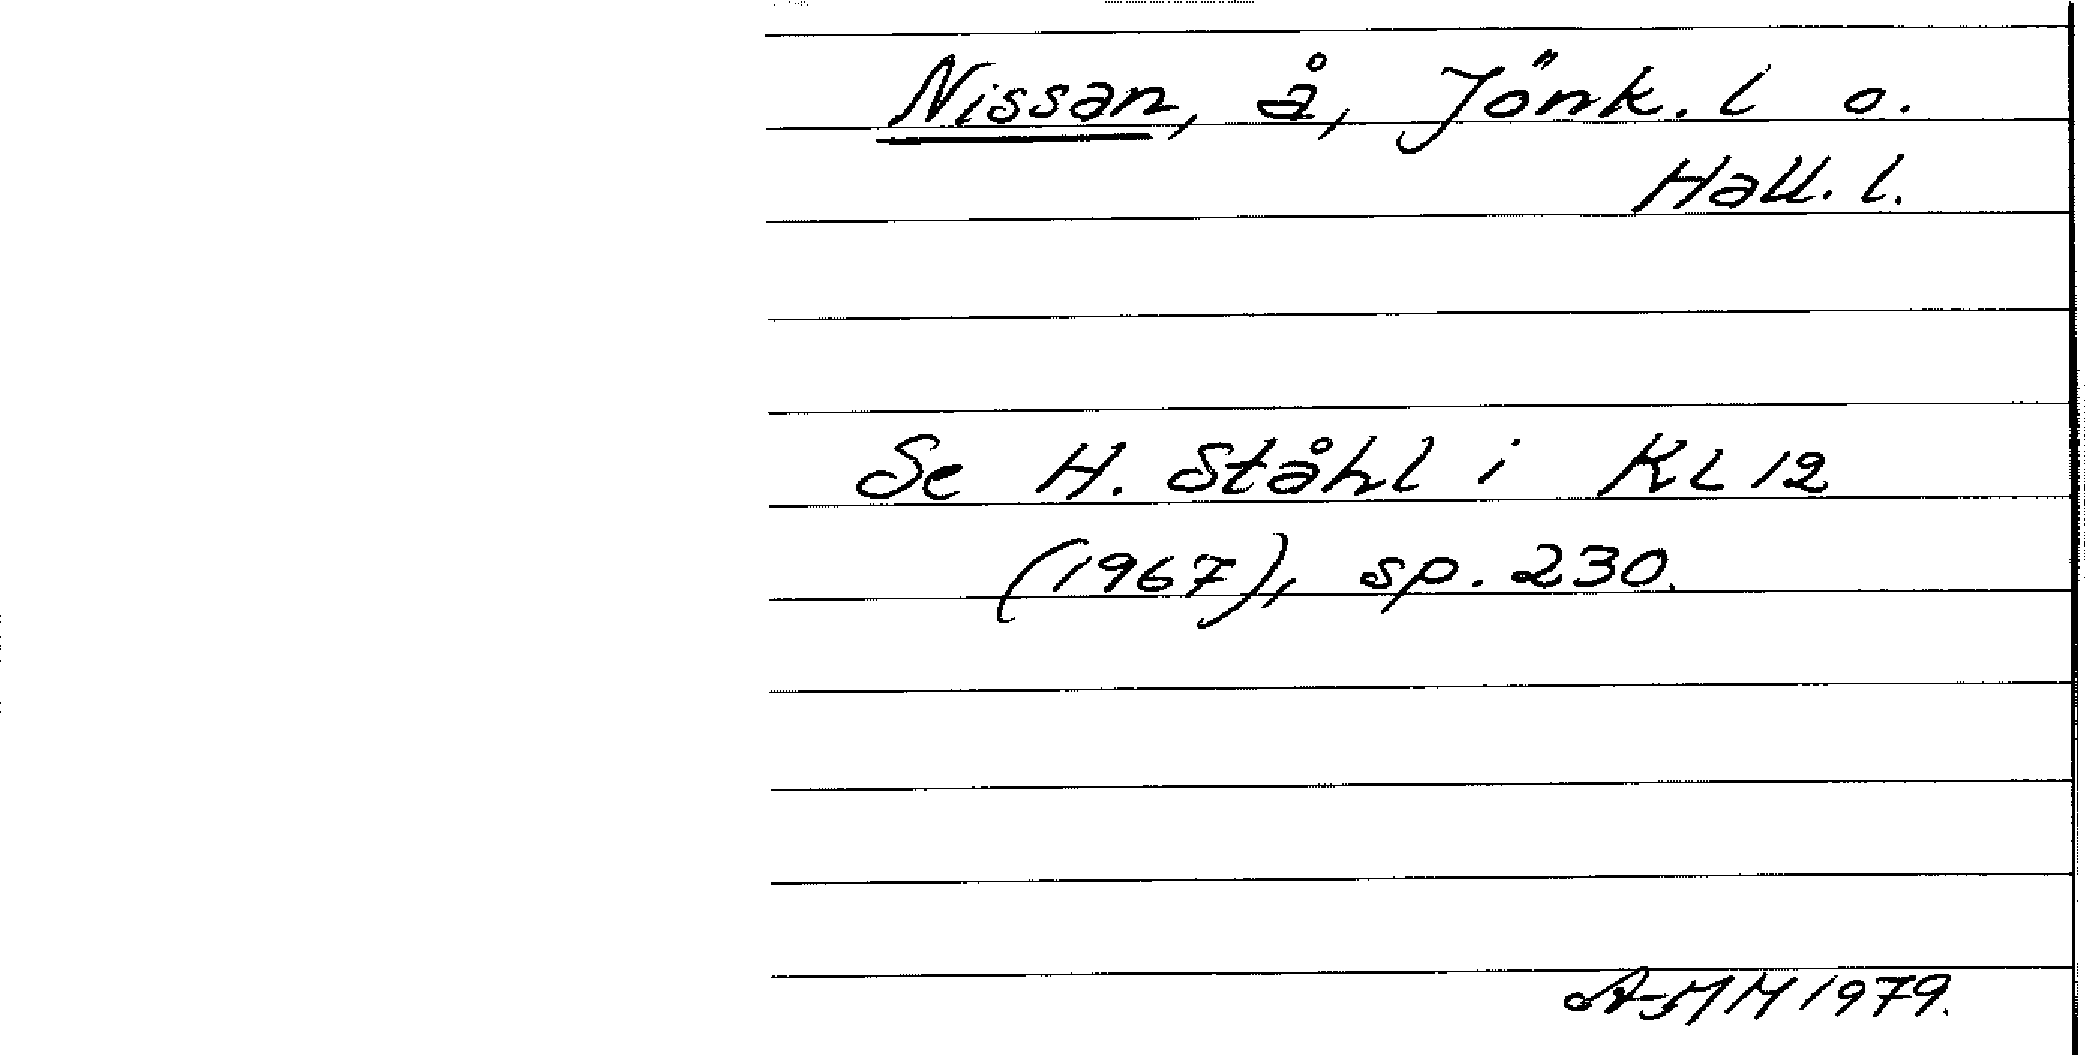 Nissan, å, Jönk. l o.
Hall. l.
Se H. Ståhl i KL 12
(1967), sp. 230.
A-MM 1979.